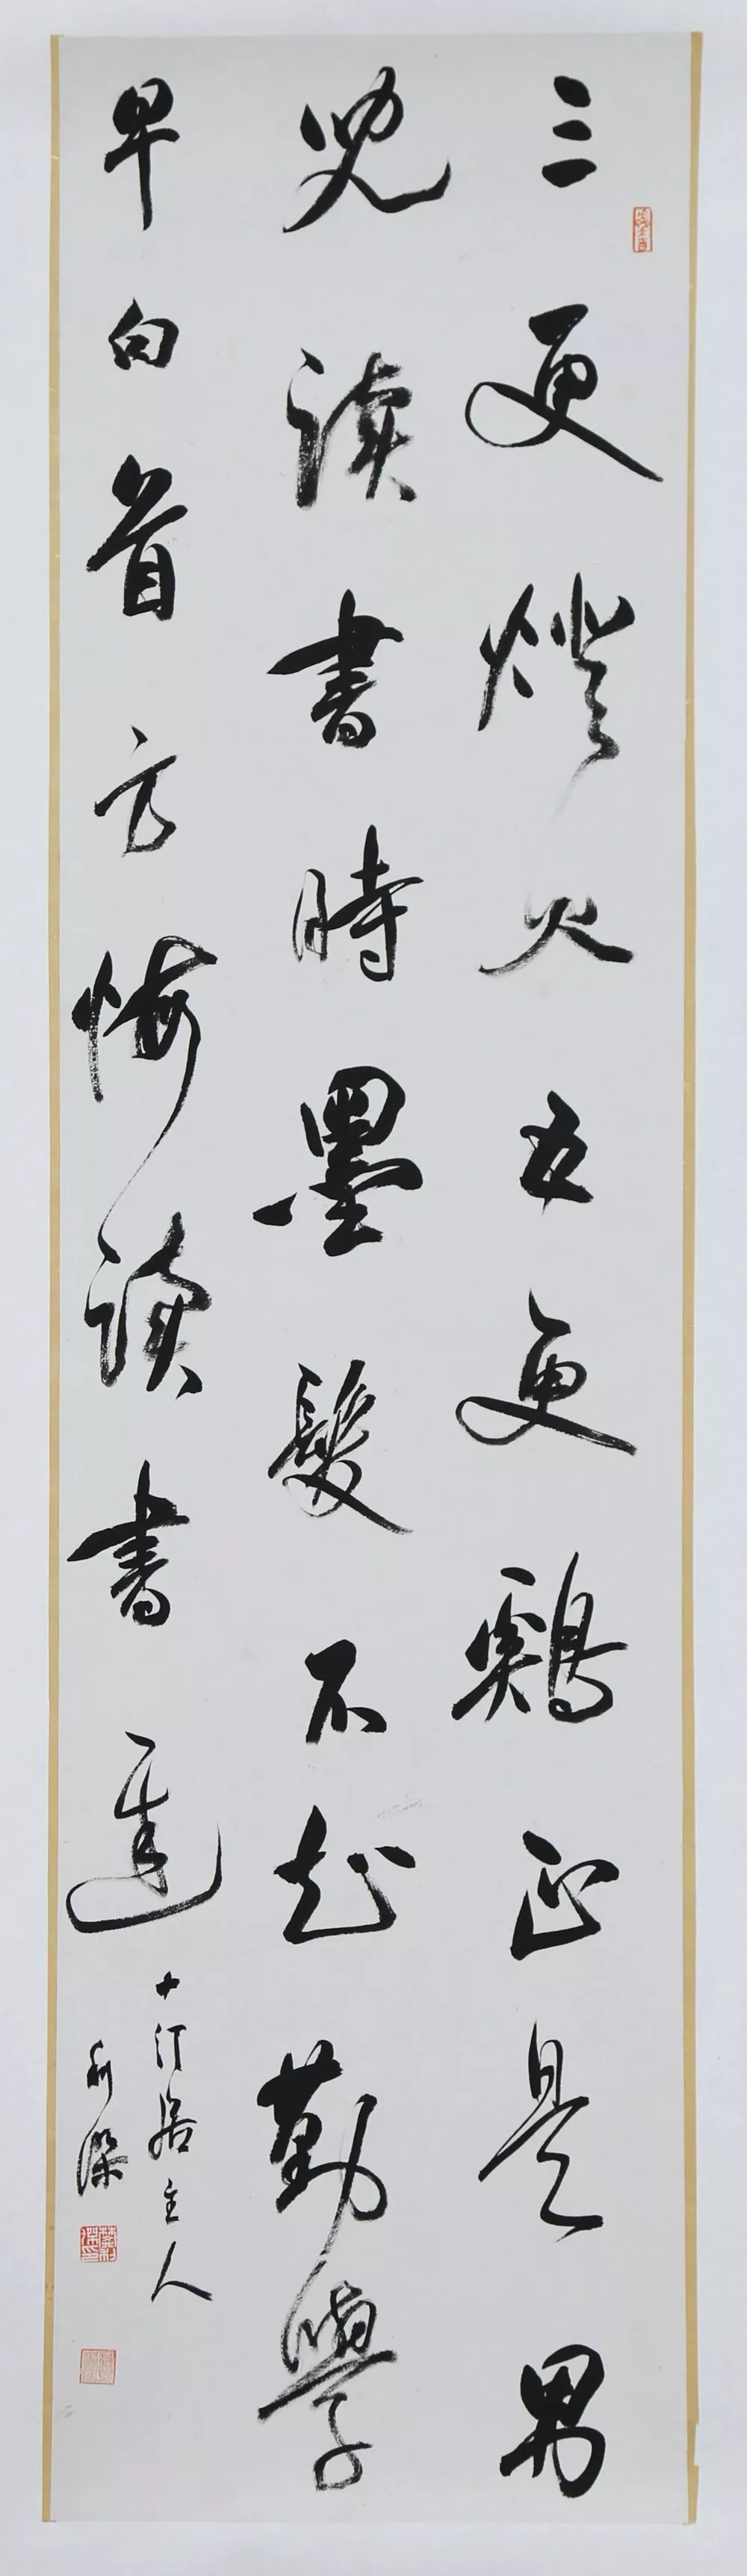 三更燈火五更鷄正是男
兒读書時墨髮不知勤學
早白首方悔读書遲
十汀居主人
利深